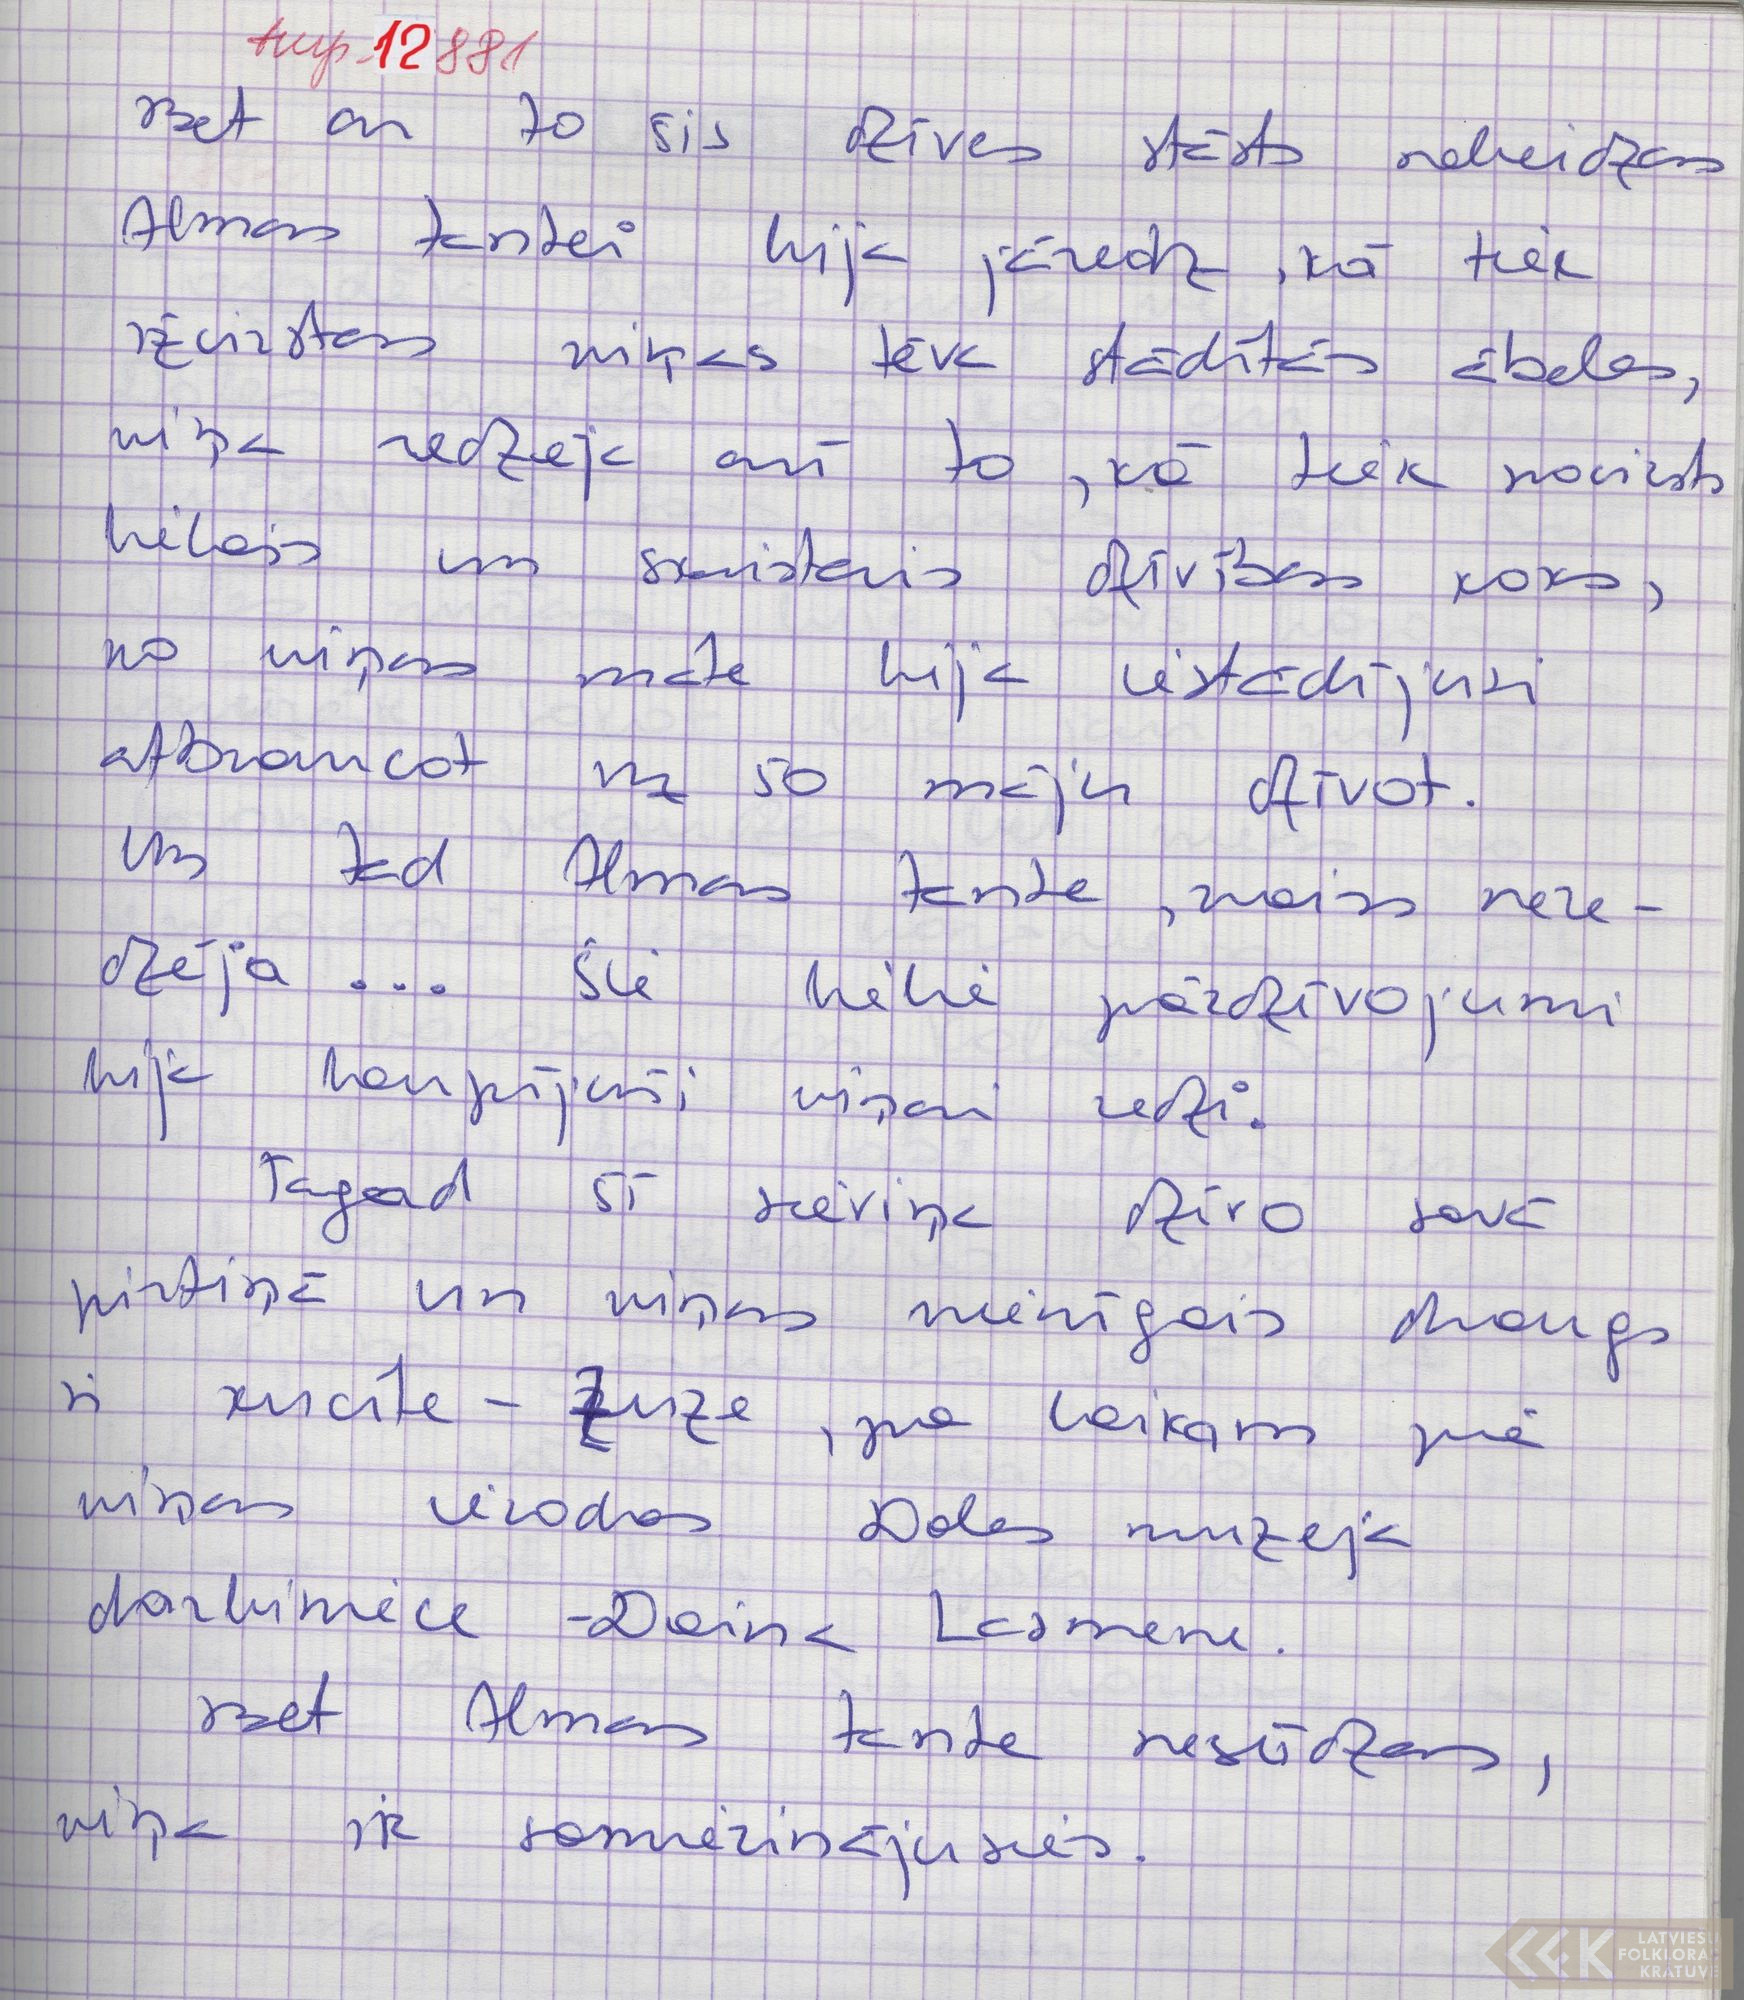 12881
Bet ar to šis dzīves stāsts nebeidzas
Almas tantei bija jāredz, kā tiek
izcirstas viņas tēva stādītās ābeles,
viņa redzēja arī to, kā tiek nocirsts
lielais un skaistais dzīvības koks,
ko viņas māte bija iestādījusi
atbraucot uz šo māju dzīvot.
Un tad Almas tante, vairs nere-
dzēja ... Šie lielie pārdzīvojumi
bija laupījuši viņai redzi.
Tagad šī sieviņa dzīvo savā
pirtiņā un viņas vienīgais draugs
ir kucīte - Zuze, pa laikam pie
viņas ierodas Doles muzeja
darbiniece - Daina Lasmane.
Bet Almas tante nesūdzas,
viņa ir samierinājusies.
LATVIEŠU
FOLKLORAS
KRĀTUVE